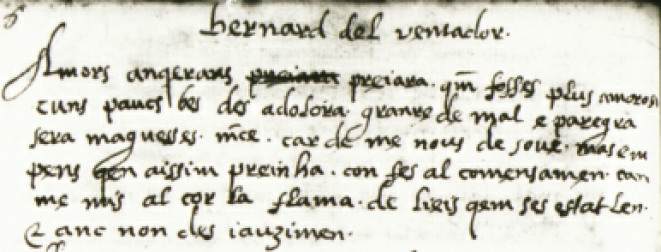 bernard del ventador.
Amors anqerans preiara. qm̄ fosses plus amorosa
cuns paucs bes des adolora. granre de mal e paregra
sera magues ses. mce. car de me nous de soue. mas em
pens qen aissim preinha. con fes al comensamen. can
me mis al cor la flama. de lieis qem ses estat len.
& anc non des iauzimen.